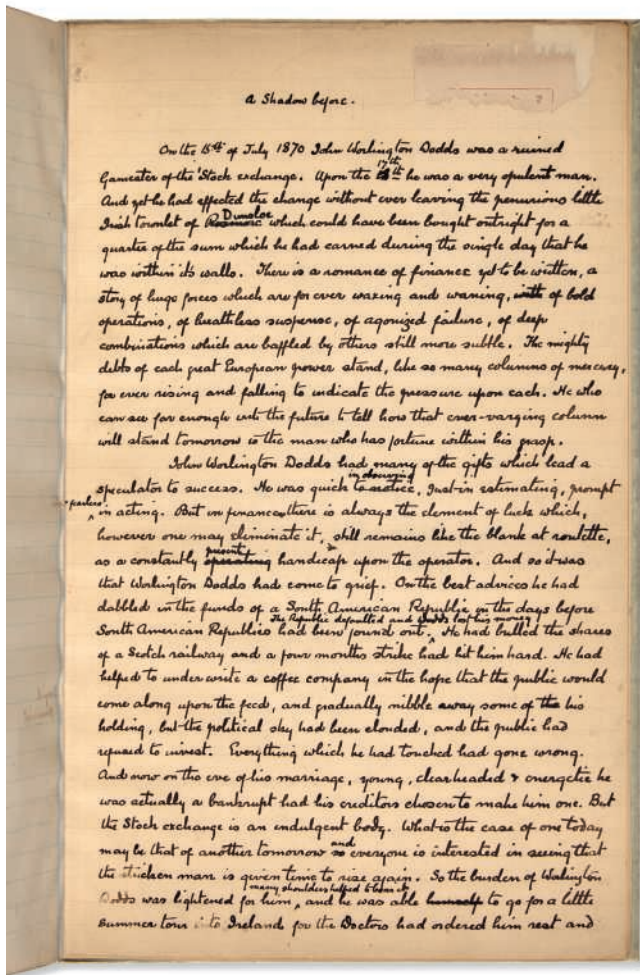 A Shadow before.
On the 15th of July 1870 John Worlington Dodds was a ruined
Gamester of the Stock exchange. Upon the 17th he was a very opulent man.
And yet he had effected the change without ever leaving the penurious little
Irish townlet of Rosmore Dunsloe which could have been bought outright for a
quarter of the sum which he had earned during the single day that he
was within its walls. There is a romance of finance yet to be written, a
story of huge forces which are for ever waxing and waning, with of bold
operations, of breathless suspense, of agonized failure, of deep
combinations which are baffled by others still more subtle. The mighty
debts of each great European power stand, like so many columns of mercury,
for ever rising and falling to indicate the pressure upon each. He who
can see far enough into the future to tell how that ever-varying column
will stand tomorrow is the man who has fortune within his grasp.
John Worlington Dodds had many of the gifts which lead a
in observing
speculator to success. He was quick to notice, just in estimating, prompt
& fearless in acting. But in finance there is always the element of luck which,
however one may eliminate it, still remains like the blank at roulette,
present
as a constantly operating handicap upon the operator. And so it was
that Worlington Dodds had come to grief. On the best advices he had
dabbled in the funds of a South American Republic in the days before
The Republic defaulted and Dodds lost his money
South American Republics had been found out. He had bulled the shares
of a Scotch railway and a four months strike had hit him hard. He had
helped to underwrite a coffee company in the hope that the public would
come along upon the feed, and gradually nibble away some of the his
holding, but the political sky had been clouded, and the public had
refused to invest. Everything which he had touched had gone wrong.
And now on the eve of his marriage, young, clearheaded & energetic he
was actually a bankrupt had his creditors chosen to make him one. But
the Stock exchange is an indulgent body. What is the case of one today
may be that of another tomorrow so and everyone is interested in seeing that
the stricken man is given time to rise again. So the burden of Worlington
many shoulders helped to bear it
Dodds was lightened for him, and he was able himself to go for a little
summer tour into Ireland for the Doctors had ordered him rest and